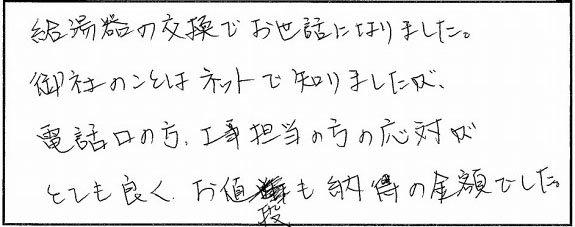 給湯器の交換でお世話になりました。
御社のことはネットで知りましたが、
電話口の方、工事担当の方の応対が
とても良く、お値段も納得の金額でした。